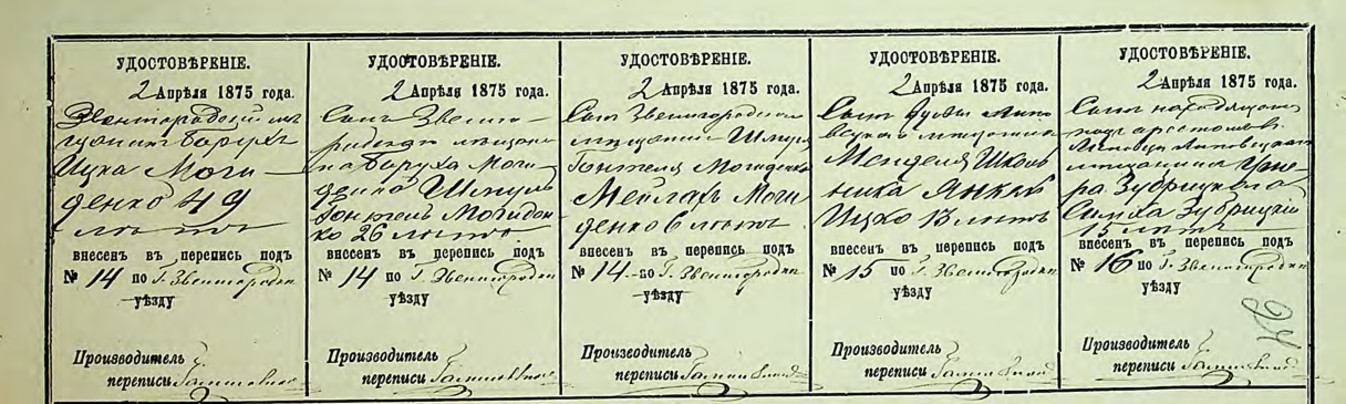 УДОСТОВѢРЕНІЕ.
2 Апрѣля 1875 года.
Звенигородскій мѣ
щанинъ Барухъ
Ицка Моги-
денко 49
лѣтъ
внесенъ въ перепись подъ
№ 14 по г. Звенигородки
уѣзду
Производитель
переписи
УДОСТОВѢРЕНІЕ.
2 Апрѣля 1875 года.
Сынъ Звени-
родскаго мѣщани
на Баруха Моги-
денко Шмуль
Гонтель Могиден-
ко 26 лѣтъ
внесенъ въ перепись подъ
№ 14 по г. Звенигородки
уѣзду
Производитель
переписи
УДОСТОВѢРЕНІЕ.
2 Апрѣля 1875 года.
Сынъ Звенигородскаго
мѣщанина Шмуля
Гонтеля Могиденко
Мейлахъ Моги
денко 6 лѣтъ
внесенъ въ перепись подъ
№ 14 по г. Звенигородки
уѣзду
Производитель
переписи
УДОСТОВѢРЕНІЕ.
2 Апрѣля 1875 года.
Сынъ вдовы Липо
вецкаго мѣщанина
Менделя Школь
ника Янкель
Ицко 13 лѣтъ
внесенъ въ перепись подъ
№ 15 по г. Звенигородки
уѣзду
Производитель
переписи
УДОСТОВѢРЕНІЕ.
2 Апрѣля 1875 года.
Сынъ находящагося
подъ арестомъ
Липовецкаго
мѣщанина
ра Зубрицкаго
Симха Зубрицкій
15 лѣтъ
внесенъ въ перепись подъ
№ 16 по г. Звенигородки
уѣзду
Производитель
переписи